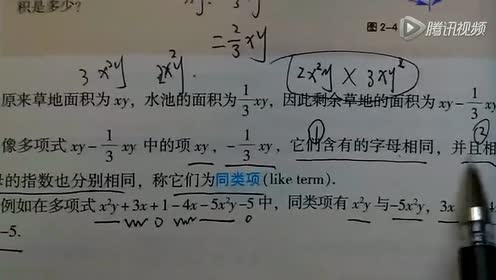 积是多少?
= 2/3 xy
图2-4
腾讯视频
3 x²y 2x²y 2x²y × 3xy²
原来草地面积为 xy,水池的面积为 1/3 xy,因此剩余草地的面积为 xy - 1/3 x
像多项式 xy - 1/3 xy 中的项 xy, -1/3 xy, 它们含有的字母相同,并且相
① ②
的指数也分别相同,称它们为同类项(like term).
例如在多项式 x²y+3x+1-4x-5x²y-5 中,同类项有 x²y 与 -5x²y, 3x
-5.